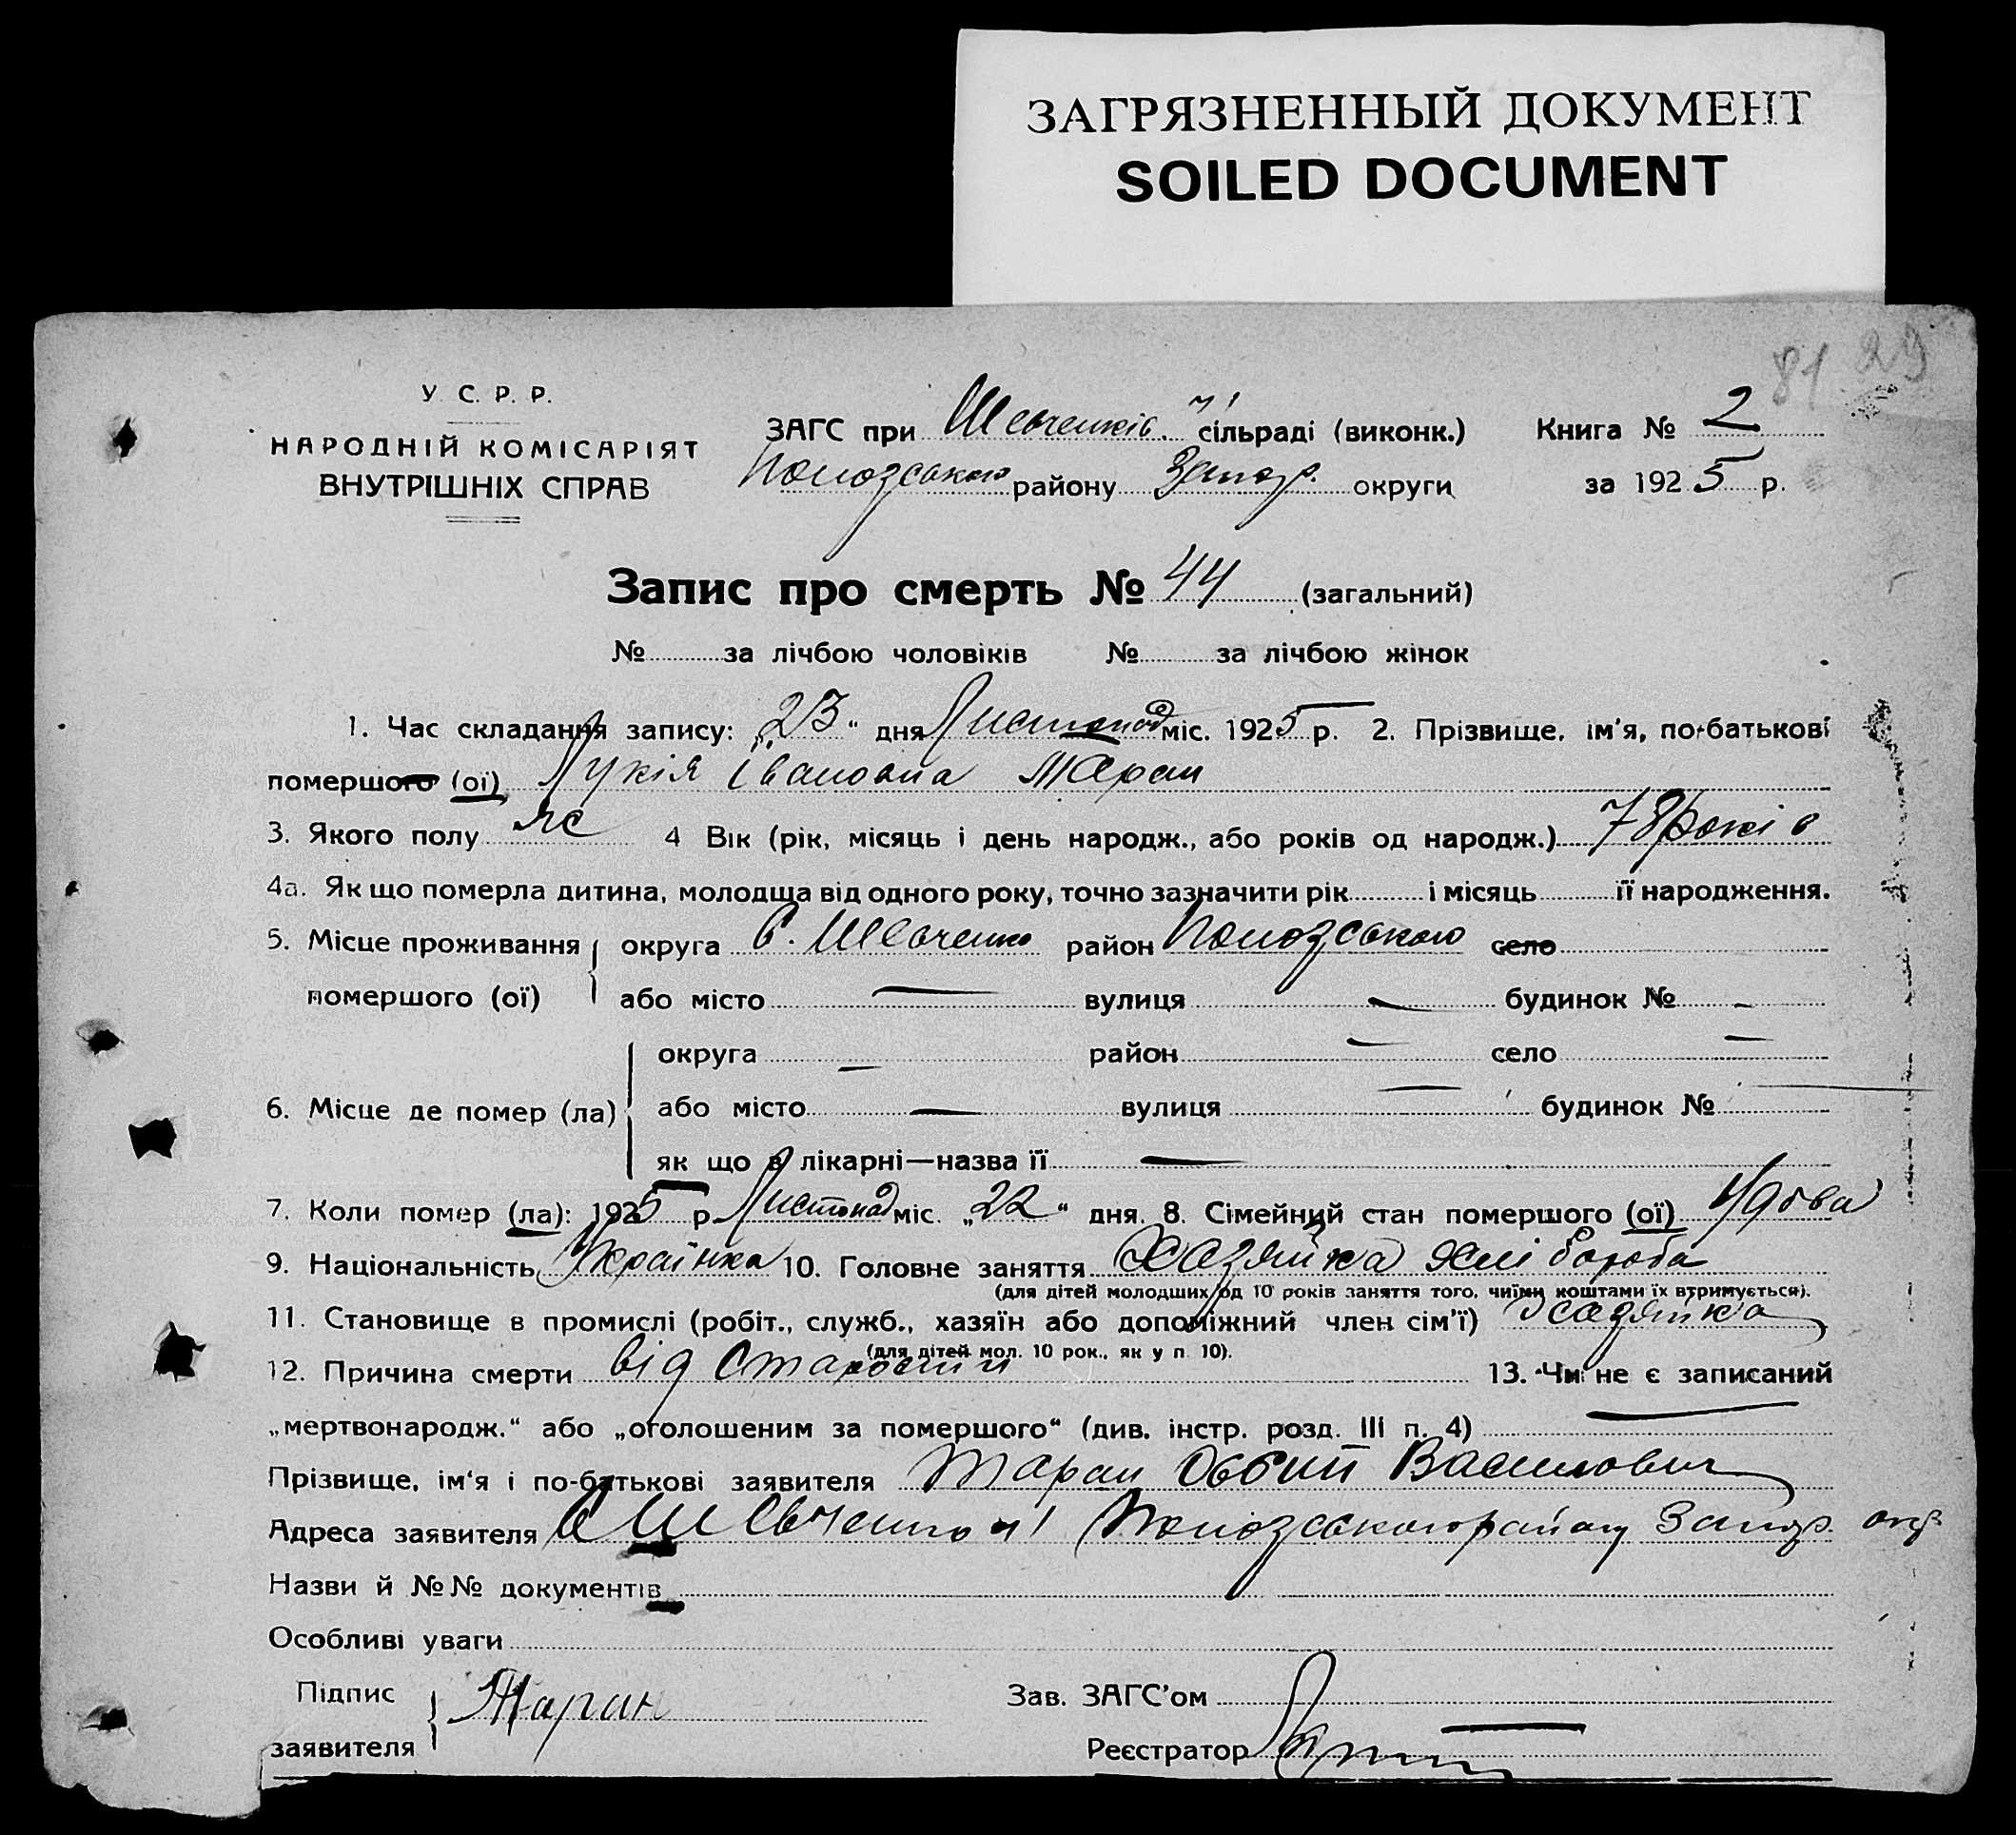 ЗАГРЯЗНЕННЫЙ ДОКУМЕНТ
SOILED DOCUMENT
81 29
У. С. Р. Р.
НАРОДНІЙ КОМІСАРІЯТ
ВНУТРІШНІХ СПРАВ
ЗАГС при Шевченків. сільраді (виконк.) Книга № 2
району Запор. округи за 1925 р.
Запис про смерть № 44 (загальний)
№ за лічбою чоловіків № за лічбою жінок
1. Час складання запису: „23“ дня Листопад міс. 1925 р. 2. Прізвище, ім'я, по-батькові
помершого (ої) Лукія Івановна Таран
3. Якого полу Жс 4 Вік (рік, місяць і день народж., або років од народж.) 78 років
4а. Як що померла дитина, молодща від одного року, точно зазначити рік і місяць її народження.
5. Місце проживання округа с. Шевченко район село
помершого (ої) або місто — вулиця — будинок № —
округа — район — село —
6. Місце де помер (ла) або місто — вулиця — будинок №
як що в лікарні—назва її —
7. Коли помер (ла): 1925 р. Листопад міс. „22“ дня. 8. Сімейний стан помершого (ої) Удова
9. Національність Українка 10. Головне заняття Хазяйка хліборобa
(для дітей молодших од 10 років заняття того, чиїми коштами їх втримується).
11. Становище в промислі (робіт., служб., хазяїн або допоміжний член сім'ї) Хазяйка
(для дітей мол. 10 рок., як у п. 10).
12. Причина смерти від старости 13. Чи не є записаний
„мертвонародж.“ або „оголошеним за помершого“ (див. інстр. розд. III п. 4) —
Прізвище, ім'я і по-батькові заявителя Таран Василович
Адреса заявителя с Шевченко району Запор. окр.
Назви й №№ документів
Особливі уваги
Підпис Таран Зав. ЗАГС'ом
заявителя Реєстратор